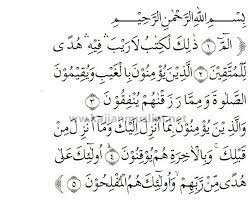 بِسْمِ اللهِ الرَّحْمٰنِ الرَّحِيْمِ
الۤمّۤ ۝١ ذٰلِكَ لْكِتٰبُ لَارَيْبَ ۛ فِيْهِ ۛ هُدًى
لِّلْمُتَّقِيْنَ ۝٢ الَّذِيْنَ يُؤْمِنُوْنَ بِالْغَيْبِ وَيُقِيْمُوْنَ
الصَّلٰوةَ وَمِمَّا رَزَقْنٰهُمْ يُنْفِقُوْنَ ۝٣
وَالَّذِيْنَ يُؤْمِنُوْنَ بِمَآ اُنْزِلَ اِلَيْكَ وَمَآ اُنْزِلَ مِنْ
قَبْلِكَ ۚ وَبِالْاٰخِرَةِ هُمْ يُوْقِنُوْنَ ۝٤ اُولٰۤئِكَ عَلٰى
هُدًى مِّنْ رَّبِّهِمْ ۙ وَاُولٰۤئِكَ هُمُ الْمُفْلِحُوْنَ ۝٥